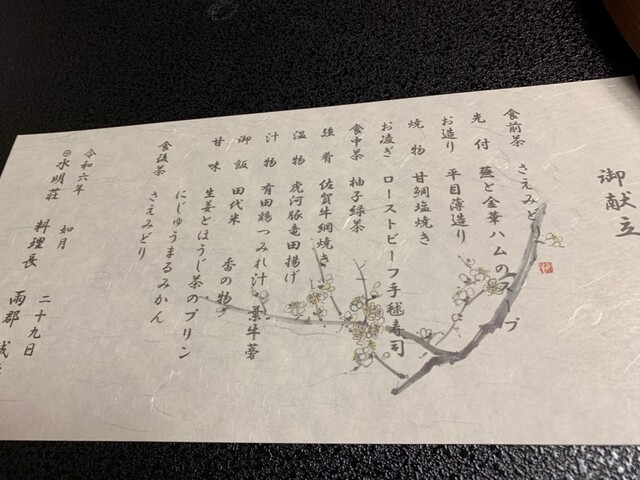 御献立
食前茶 さえみどり
先付 蕪と金華ハムのスープ
お造り 平目薄造り
焼物 甘鯛塩焼き
お凌ぎ ローストビーフ手毬寿司
食中茶 柚子緑茶
強肴 佐賀牛網焼き
温物 虎河豚竜田揚げ
汁物 有田鶏つみれ汁・葉牛蒡
御飯 田代米 香の物
甘味 生姜とほうじ茶のプリン
にじゅうまるみかん
食後茶 さえみどり
令和六年 如月 二十九日
水明荘 料理長 雨郡